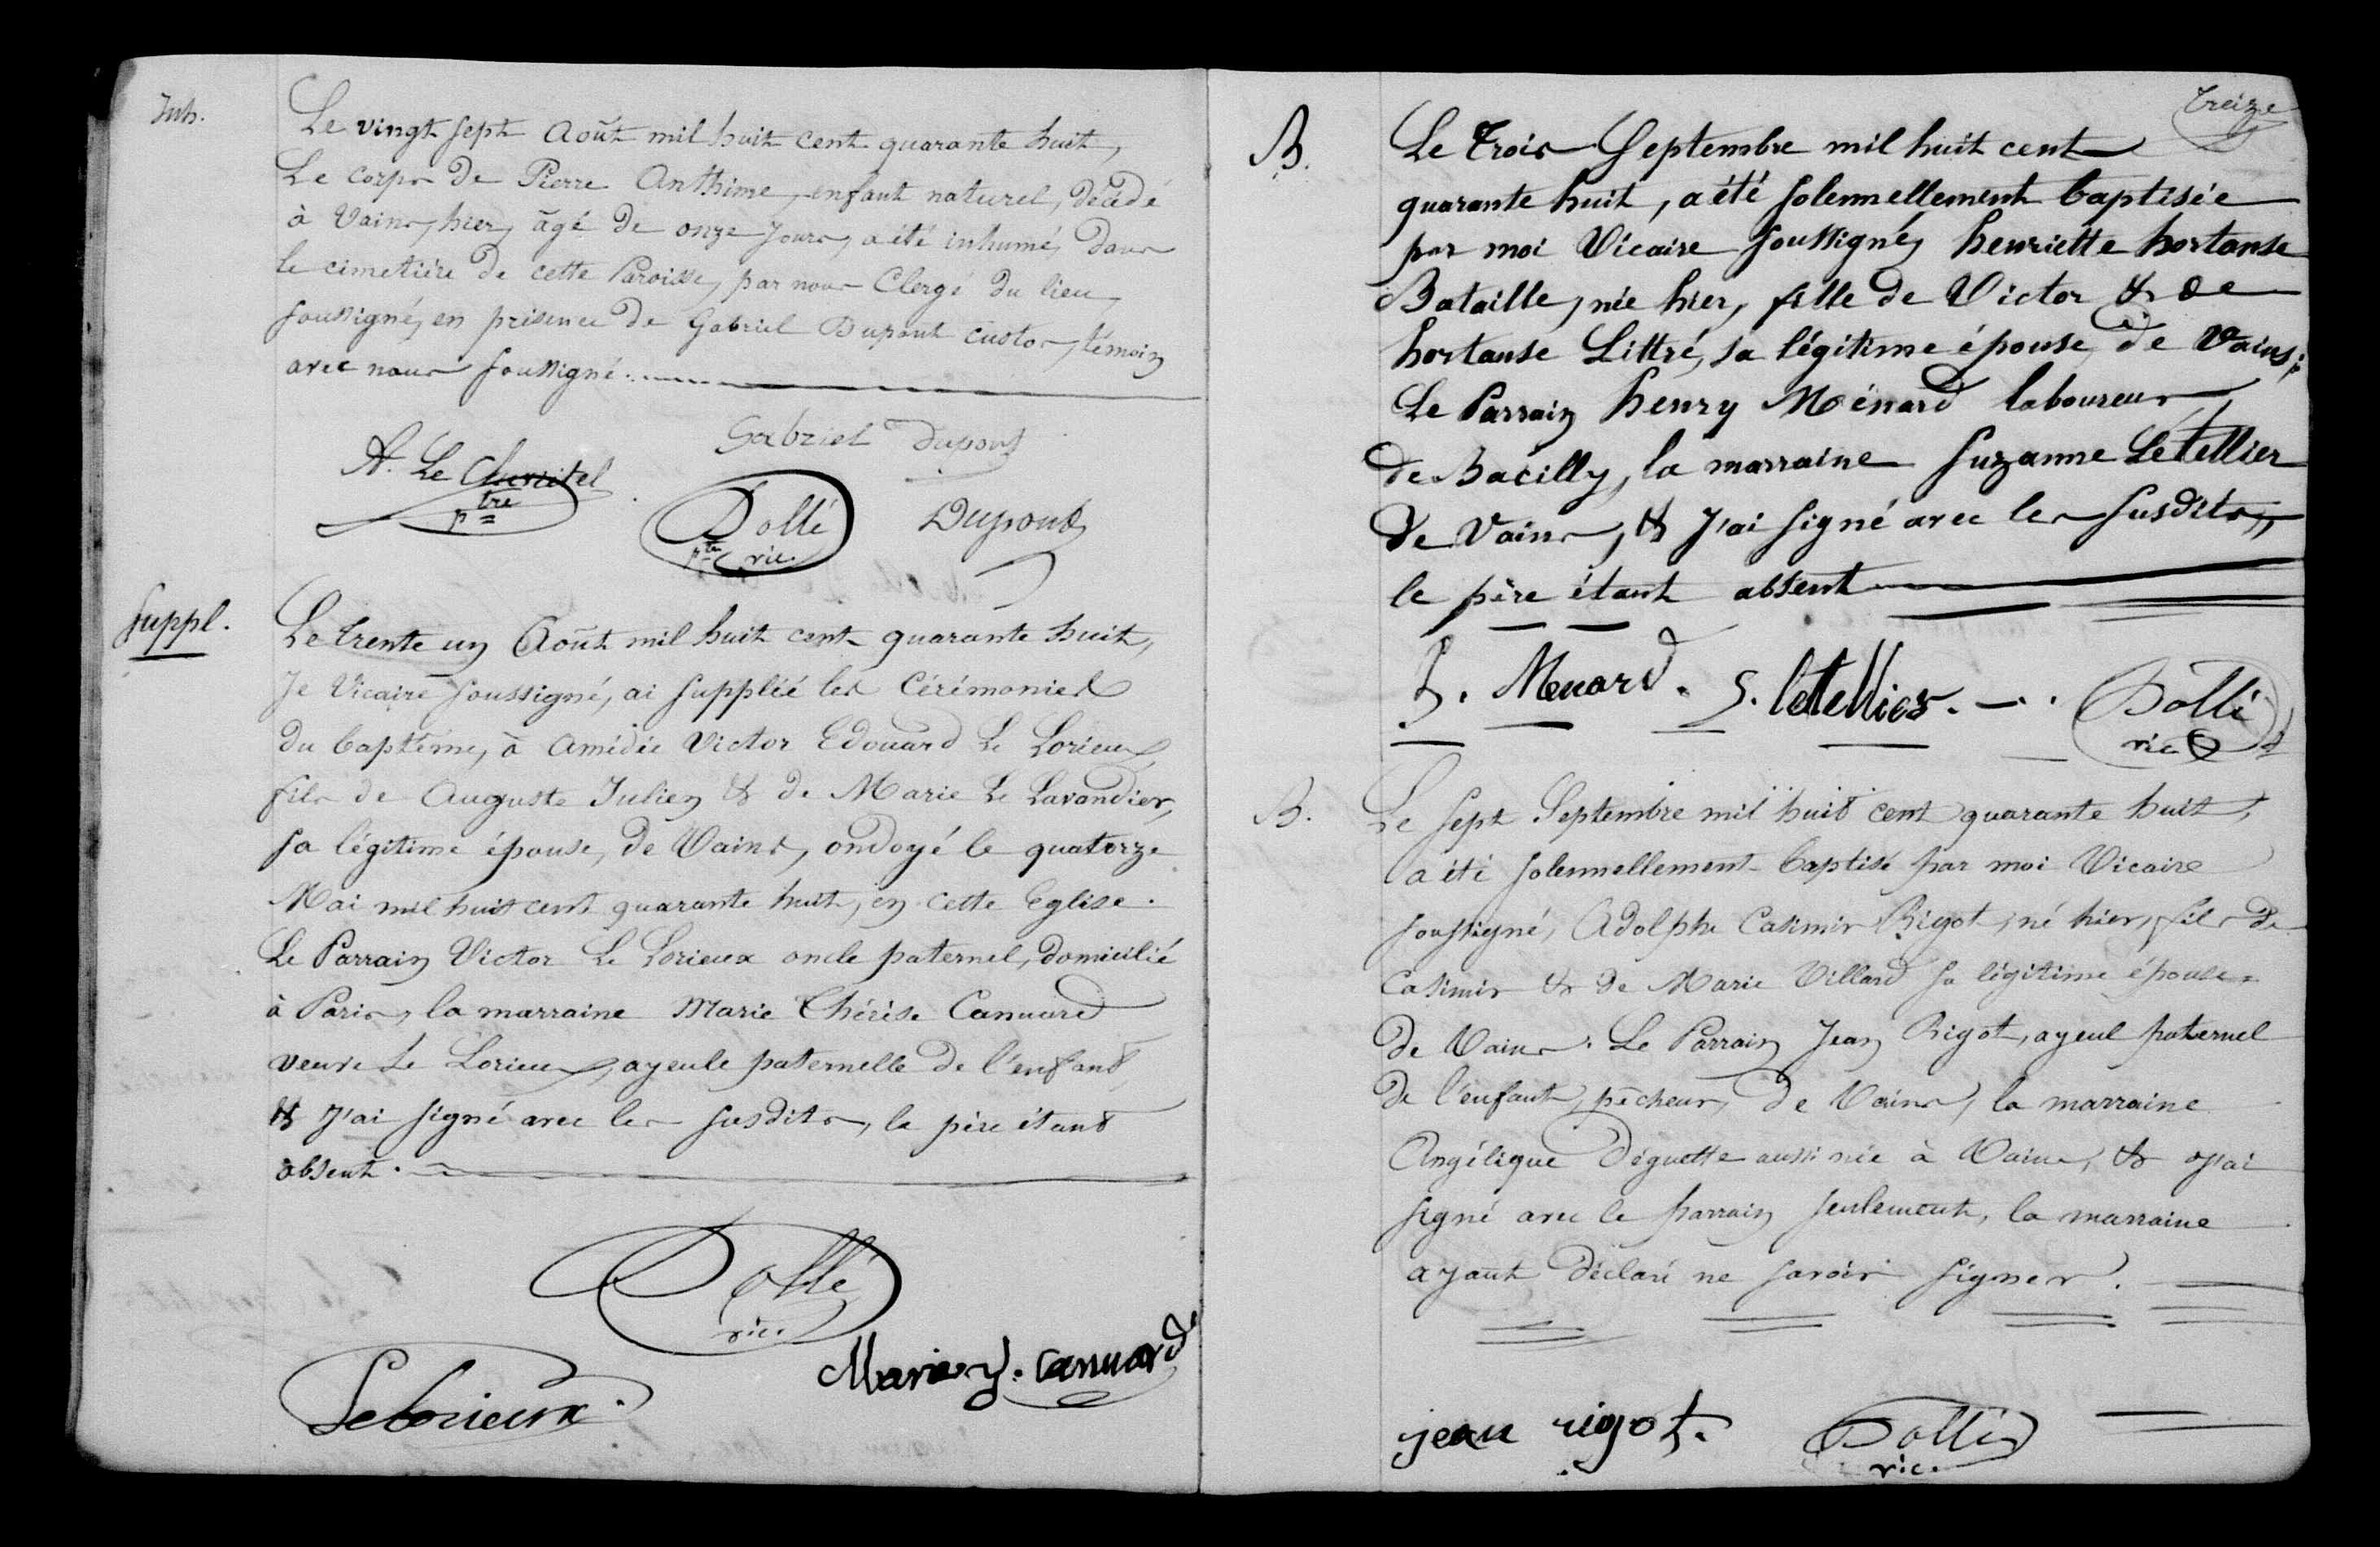 Inh.
Le vingt sept Août mil huit cent quarante huit,
Le corps de Pierre Anthime, enfant naturel, décédé
à Vains, hier, âgé de onze jours, a été inhumé, dans
le cimetière de cette Paroisse, par nous Clergé du lieu,
soussigné, en présence de Gabriel Dupont custos, témoin
avec nous soussigné.
Gabriel Dupont
A. Le Charitel
ptre
Dollé
ptre vic.
Dupont
Suppl.
Le trente un Août mil huit cent quarante huit,
Je Vicaire soussigné, ai supplée les Cérémonies
du baptême, à Amédée Victor Edouard Le Lorieux
fils de Auguste Julien & de Marie Le Lavandier,
sa légitime épouse, de Vains, ondoyé le quatorze
Mai mil huit cent quarante huit, en cette Eglise.
Le Parrain Victor Le Lorieux oncle paternel, domicilié
à Paris, la marraine Marie Thérèse Canuard
veuve Le Lorieux, ayeule paternelle de l'enfant,
& j'ai signé avec les susdits, le père étant
absent.
Dollé
vic.
Marie J. Canuard
Lelorieux
Treize
B.
Le Trois Septembre mil huit cent
quarante huit, a été solennellement baptisée
par moi Vicaire soussigné, henriette hortanse
Bataille, née hier, fille de Victor & de
hortanse Littré, sa légitime épouse, de Vains;
Le Parrain henry Ménard laboureur,
de Bacilly, la marraine Suzanne Letellier
de Vains, & j'ai signé avec les susdits,
le père étant absent
h. Menard. S. letellier.
Dollé
vic
B.
Le sept Septembre mil huit cent quarante huit,
a été solennellement baptisé par moi Vicaire
soussigné, Adolphe Casimir Rigot, né hier, fils de
Casimir & de Marie Villard sa légitime épouse
de Vains. Le Parrain Jean Rigot, ayeul paternel
de l'enfant, pêcheur, de Vains, la marraine
Angélique Déguette aussi née à Vains, & j'ai
signé avec le parrain seulement, la marraine
ayant déclaré ne savoir signer.
jean rigot.
Dollé
vic.